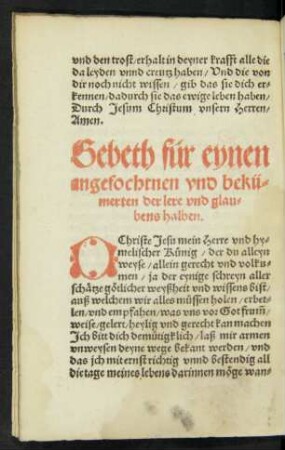 vnd den trost/erhalt in deyner krafft alle die
da leyden vnnd creutz haben/ Vnd die von
dir noch nicht wissen/ gib das sie dich er-
kennen/dadurch sie das ewige leben haben/
Durch Jesum Christum vnsern Herren
Amen.
Gebeth für eynen
angefochtnen vnd bekü-
merten der lere vnd glau-
bens halben.
O Christe Jesu mein Herre vnd hy-
melischer Künig/ der du alleyn
weyse/ allein gerecht vnd volku-
men/ ja der eynige schreyn aller
schätze götlicher weyßheit vnd wissens bist/
auß welchem wir alles müssen holen/ erbet-
len/vnd empfahen/was vns vor Got frum̃/
weise/gelert/heylig vnd gerecht kan machen
Ich bitt dich demütigklich/ laß mir armen
vnweysen deyne wege bekant werden/vnd
das ich mit ernst richtig vnnd bestendig all
die tage meines lebens darinnen möge wan-